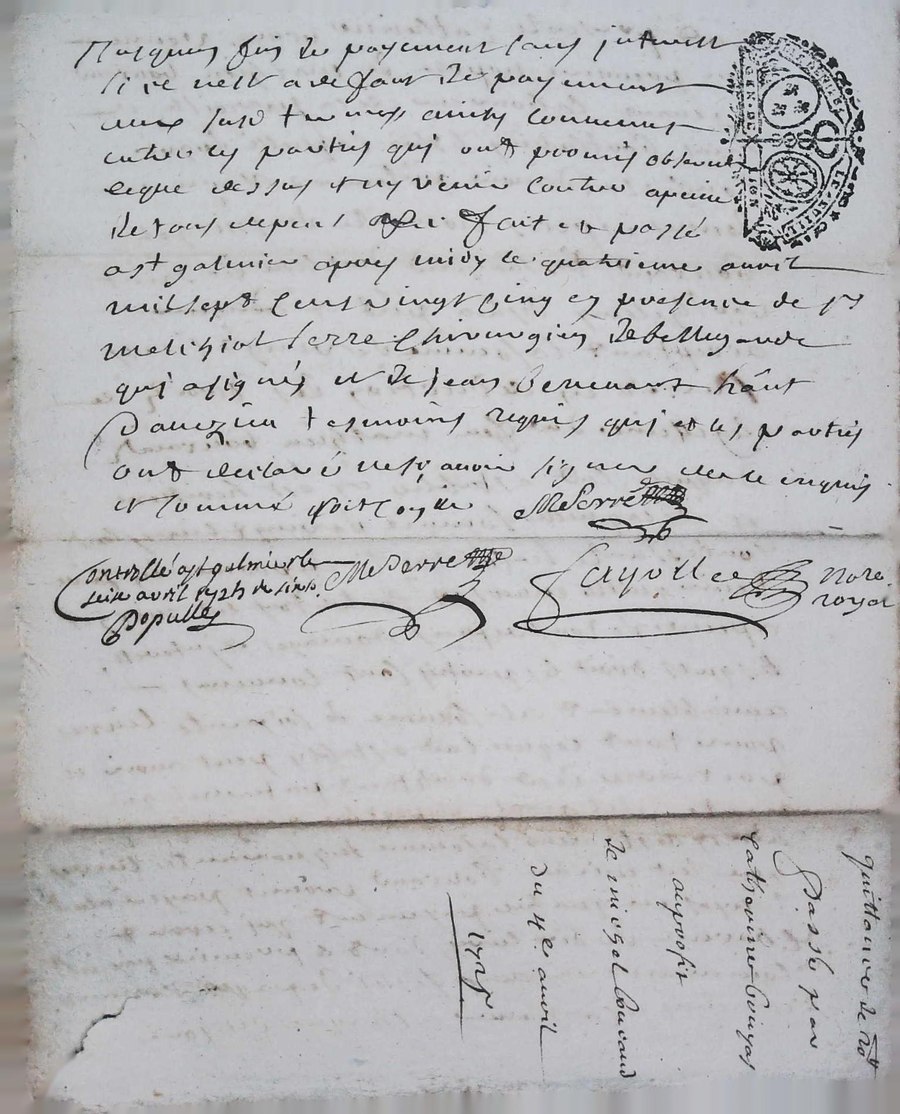 Jusques fin de payement sans interest
si ce nest a deffaut de payement
aux susd termes ainsy convenus
entre les parties qui ont promis observer
ce que dessus et ny venir contre apeine
de tous depens fait et passé
a st galmier apres midy le quatrieme avril
mil sept cens vingt cinq en presence de sr
melchiol serre chirurgien de bellegarde
qui a signés et de jean hânt
d'auezieu tesmoins requis qui et les parties
ont declaré ne sçavoir signer de ce enquis
et sommé soit controllé MeSerre
Controllé a st galmier le
seize avril 1725 Reçu six s.
Populle
MeSerre
fayolle
Note
royal
GEN. DE LION
quittance de 20lt
Passée par
Catherine
au profit
de
du 4e avril
1725